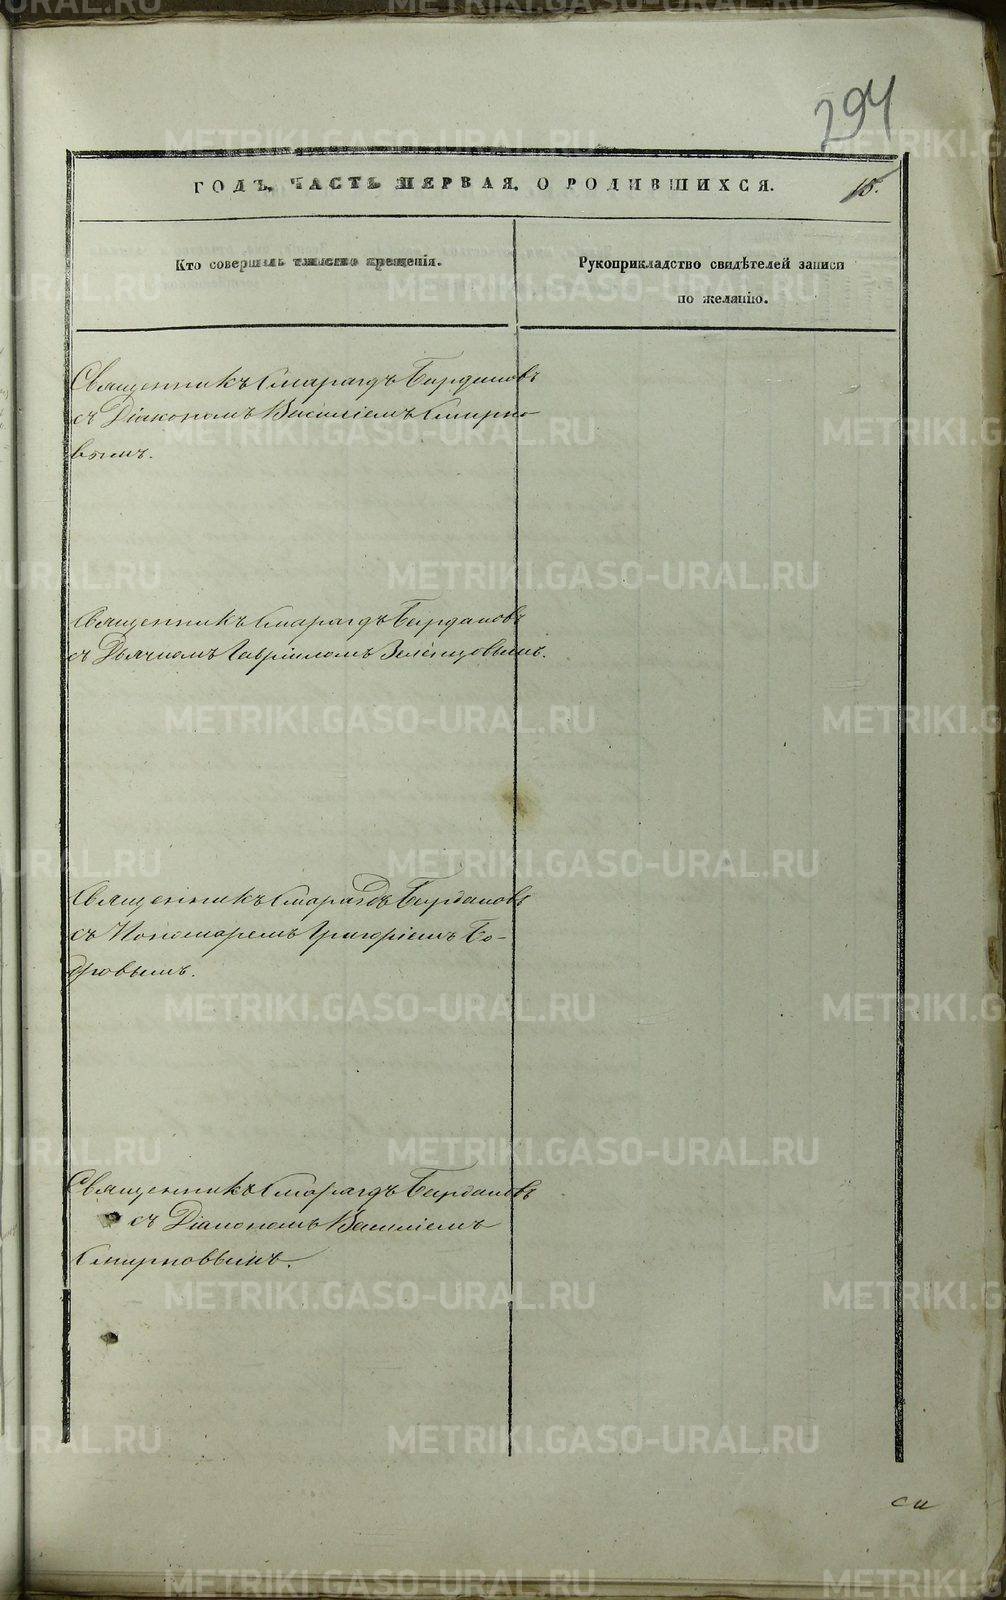 294
ГОДЪ, ЧАСТЬ ПЕРВАЯ, О РОДИВШИХСЯ. 15.
Кто совершилъ таинство крещенія.
Рукоприкладство свидѣтелей записи
по желанію.
Священникъ Смарагдъ Бирдановъ
съ Діакономъ Василіемъ Смирно-
вымъ.
Священникъ Смарагдъ Бирдановъ
съ Дьячкомъ Гавріиломъ Зеленцовымъ.
Священникъ Смарагдъ Бирдановъ
съ Пономаремъ Григоріемъ Бо-
дровымъ.
Священникъ Смарагдъ Бирдановъ
съ Діакономъ Василіемъ
Смирновымъ.
METRIKI.GASO-URAL.RU